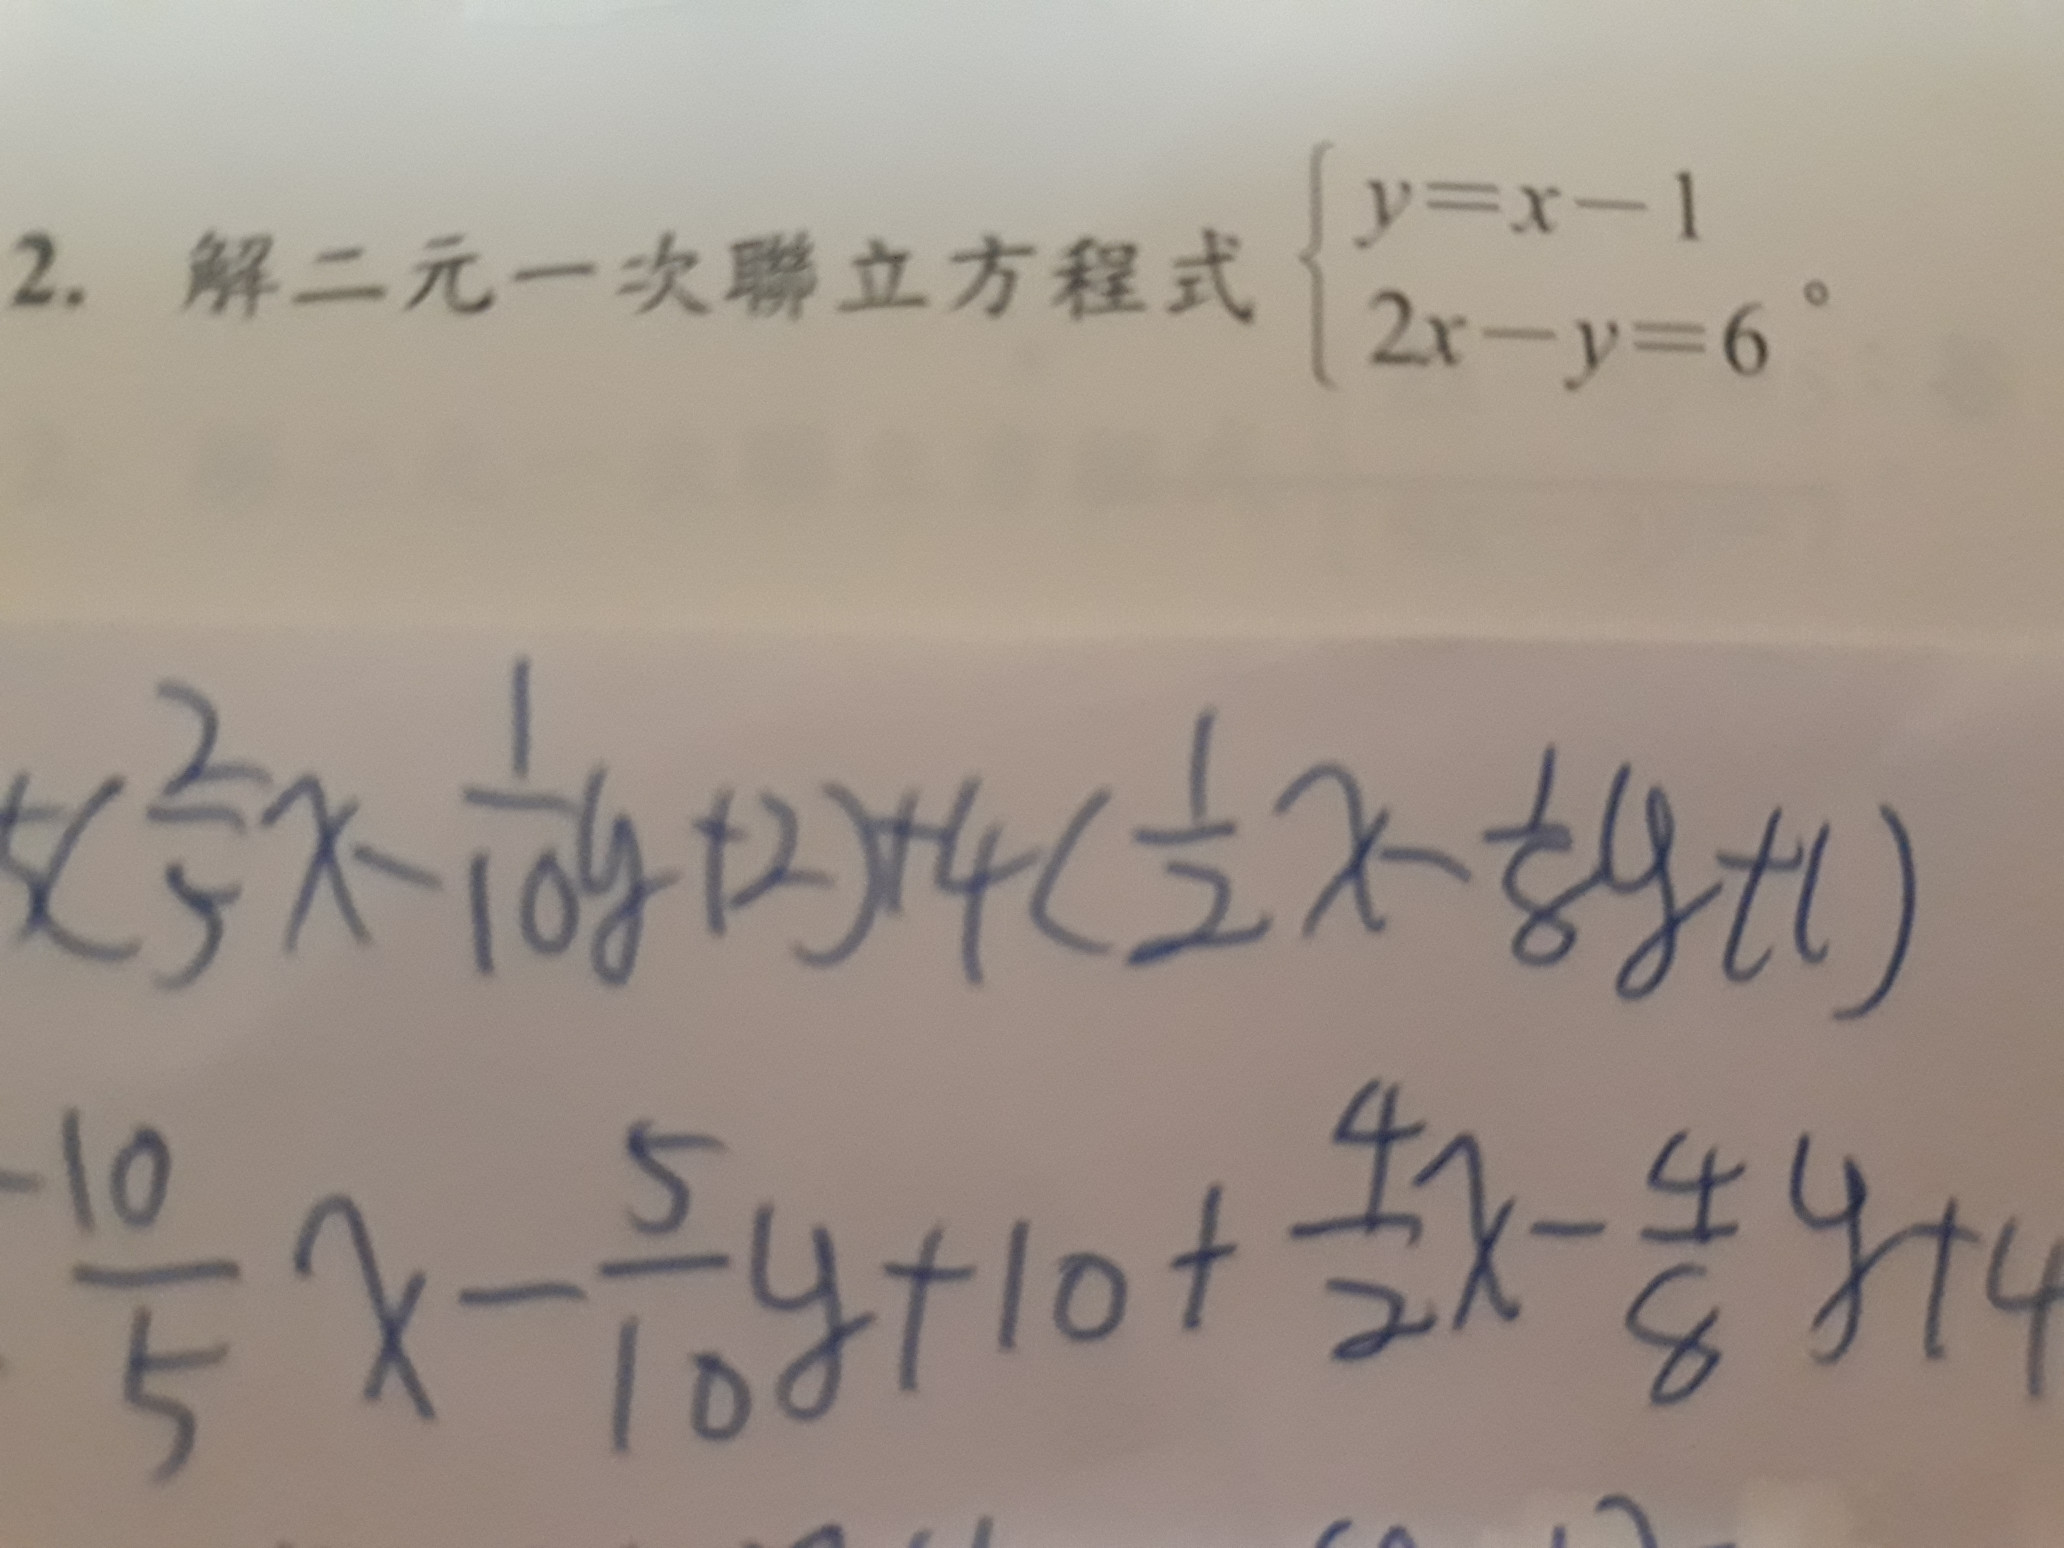 2. 解二元一次聯立方程式 { y=x-1
2x-y=6 。
5(2/5x-1/10y+2)+4(1/2x-1/8y+1)
10/5x-5/10y+10+4/2x-4/8y+4